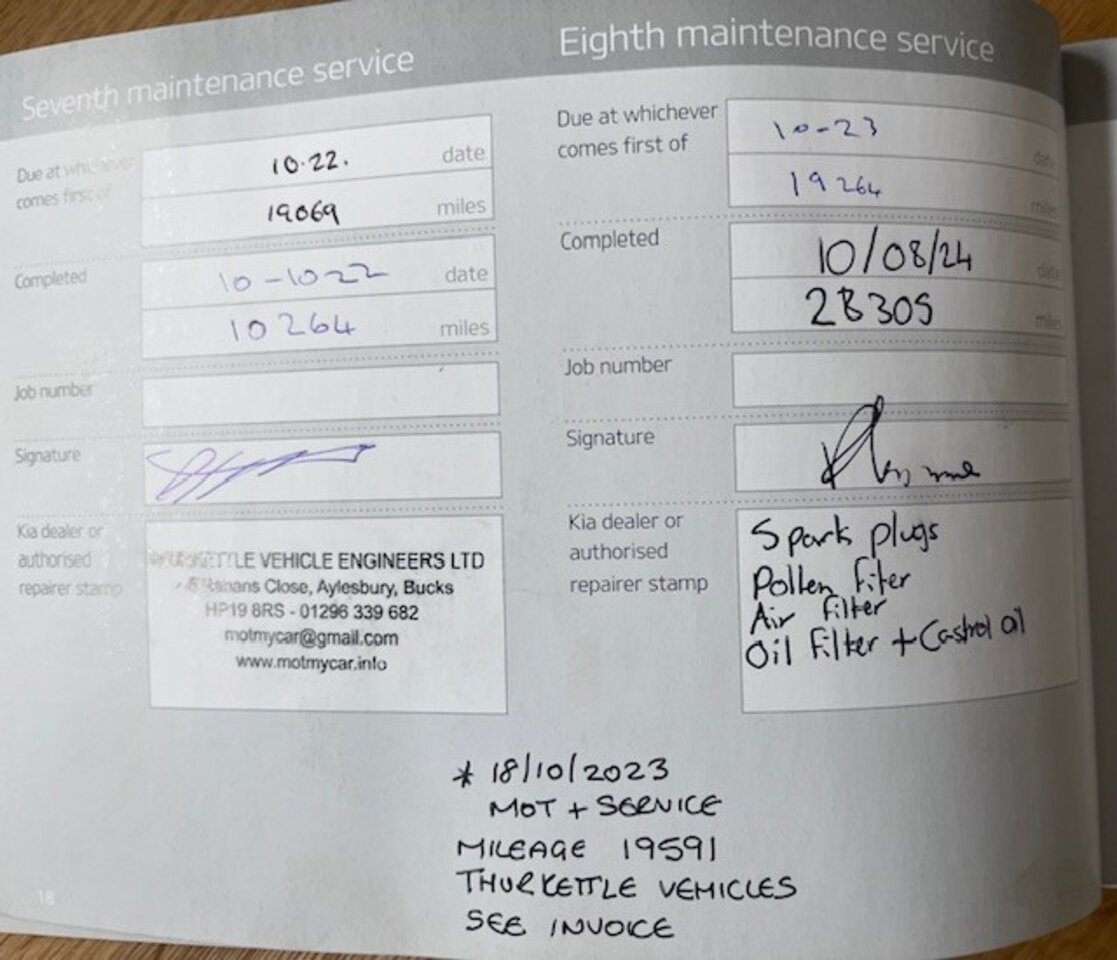 Seventh maintenance service
Due at whichever
comes first of
10.22. date
19069 miles
Completed
10-1022 date
10264 miles
Job number
Signature
Kia dealer or
authorised
repairer stamp
VEHICLE ENGINEERS LTD
Close, Aylesbury, Bucks
HP19 8RS - 01296 339 682
motmycar@gmail.com
www.motmycar.info
Eighth maintenance service
Due at whichever
comes first of
10-23 date
19264 miles
Completed
10/08/24 date
28305 miles
Job number
Signature
Kia dealer or
authorised
repairer stamp
Spark plugs
Pollen Filer
Air filter
Oil Filter + Castrol oil
* 18/10/2023
MOT + SERVICE
MILEAGE 19591
THURKETTLE VEHICLES
SEE INVOICE
18